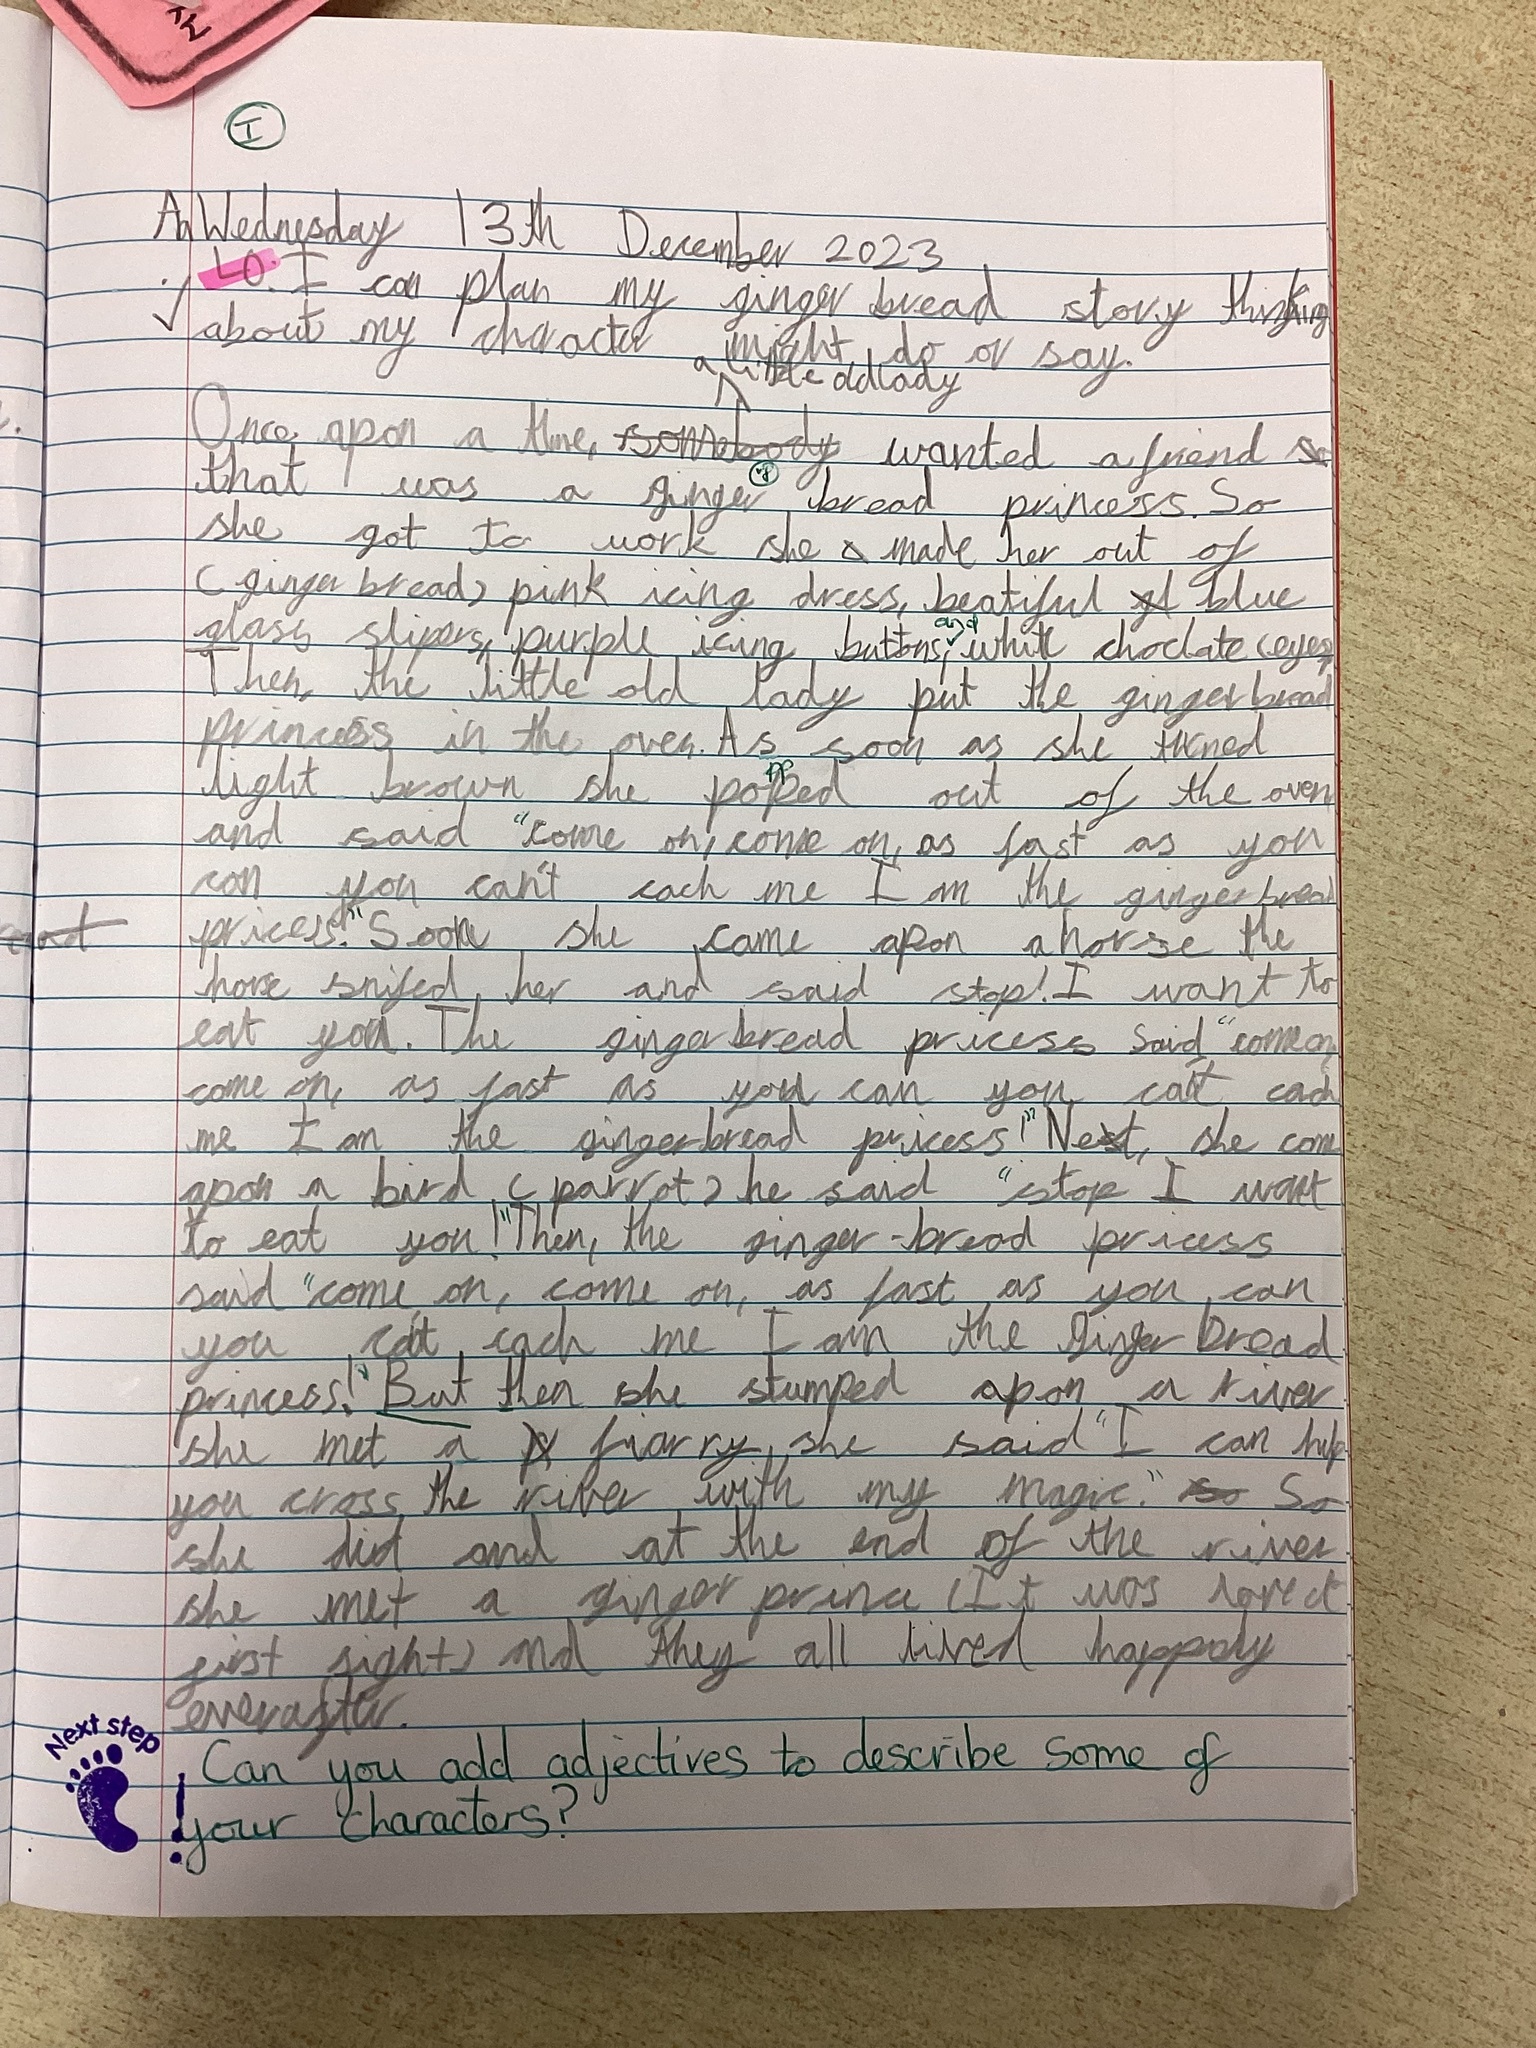 I
Aa Wednesday 13th December 2023
LO: I can plan my ginger bread story thinking
about my character might do or say.
a little oldlady
Once apon a time, somebody wanted a friend so
that was a ginger bread princess. So
she got to work she made her out of
(ginger bread) pink icing dress, beatiful blue
and
glass slipers, purple icing buttons, white choclate (eyes)
Then, the little old lady put the gingerbread
princess in the oven. As soon as she turned
pp
light brown she popped out of the oven
and said "come on, come on, as fast as you
can you can't cach me I am the gingerbread
pricess!" Soon she came apon a horse the
horse snifed her and said stop! I want to
eat you. The gingerbread pricess said "come on,
come on, as fast as you can you cat cach
me I am the gingerbread pricess!" Next, she come
apon a bird (parrot) he said "stop I want
to eat you!" Then, the ginger-bread pricess
said "come on, come on, as fast as you can
you cat cach me I am the ginger bread
princess!" But then she stumped apon a river
she met a fiarry, she said "I can help
you cross the river with my magic." so So
she did and at the end of the river
she met a ginger prince (It was love
first sight) and they all lived
everafter.
Next step
Can you add adjectives to describe some of
your characters?